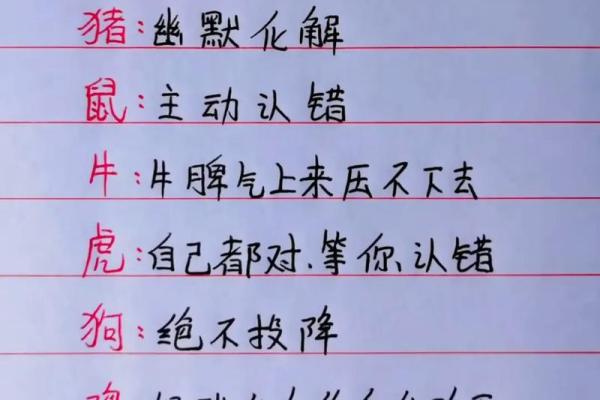 猪:幽默化解
鼠:主动认错
牛:牛脾气上来压不下去
虎:自己都对、等你认错
狗:绝不投降